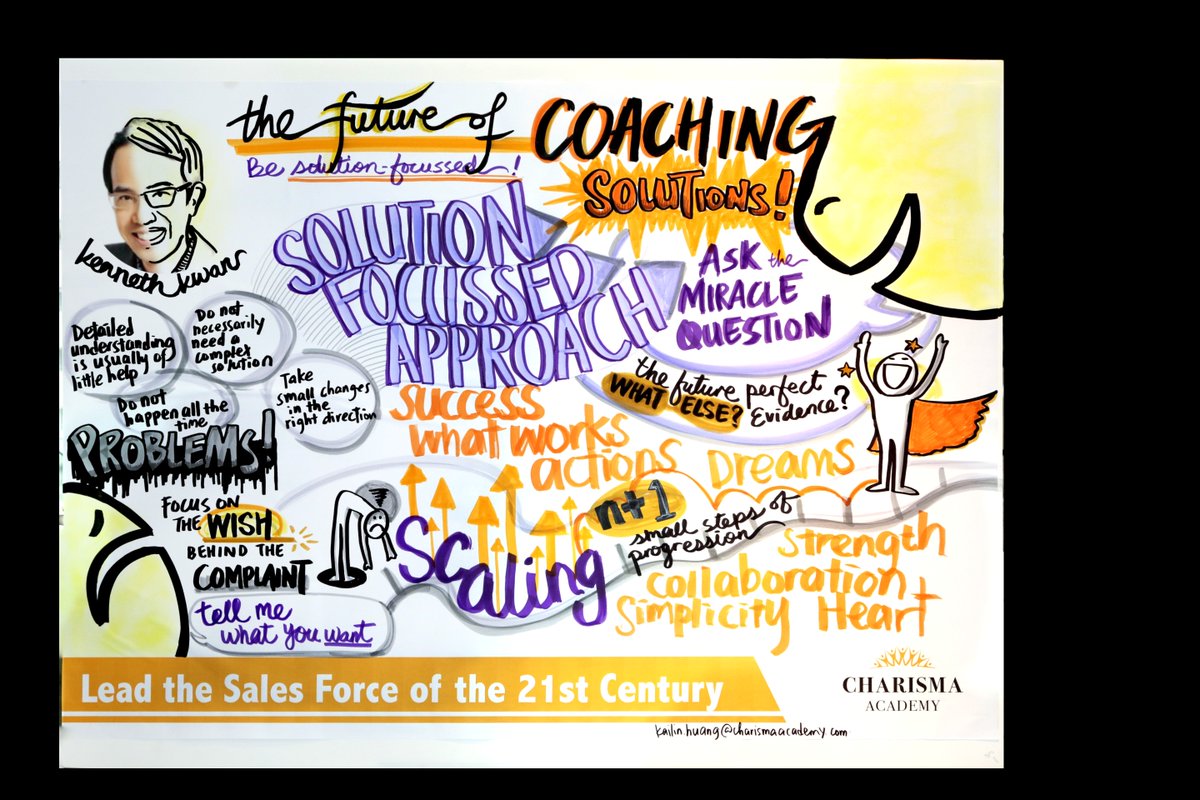 the future of COACHING
Be solution-focussed!
SOLUTIONS!
kenneth kwan
SOLUTION
FOCUSSED
APPROACH
ASK the
MIRACLE
QUESTION
Detailed
understanding
is usually of
little help
Do not
necessarily
need a
complex
solution
Do not
happen all the
time
Take
small changes
in the
right direction
PROBLEMS!
the future perfect
WHAT ELSE? Evidence?
success
what works
actions
Dreams
FOCUS ON
THE WISH
BEHIND THE
COMPLAINT
tell me
what you want
Scaling
n+1
small steps of
progression
strength
collaboration
Simplicity Heart
Lead the Sales Force of the 21st Century
CHARISMA
ACADEMY
kailin.huang@charismaacademy.com